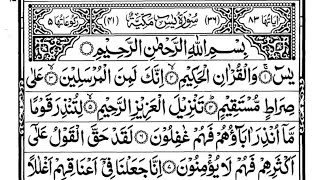 اٰیاتها ٨٣ (٣٦) سُوْرَةُ یٰسٓ مَكِّیَّةٌ (٤١) رکوعاتها ٥
بِسْمِ اللّٰهِ الرَّحْمٰنِ الرَّحِیْمِ
یٰسٓ ۚ وَالْقُرْاٰنِ الْحَكِیْمِ ۙ اِنَّكَ لَمِنَ الْمُرْسَلِیْنَ ۙ عَلٰی
صِرَاطٍ مُّسْتَقِیْمٍ ؕ تَنْزِیْلَ الْعَزِیْزِ الرَّحِیْمِ ۙ لِتُنْذِرَ قَوْمًا
مَّاۤ اُنْذِرَ اٰبَآؤُهُمْ فَهُمْ غٰفِلُوْنَ ٦ لَقَدْ حَقَّ الْقَوْلُ عَلٰۤی
اَكْثَرِهِمْ فَهُمْ لَا یُؤْمِنُوْنَ ٧ اِنَّا جَعَلْنَا فِیْۤ اَعْنَاقِهِمْ اَغْلٰلًا